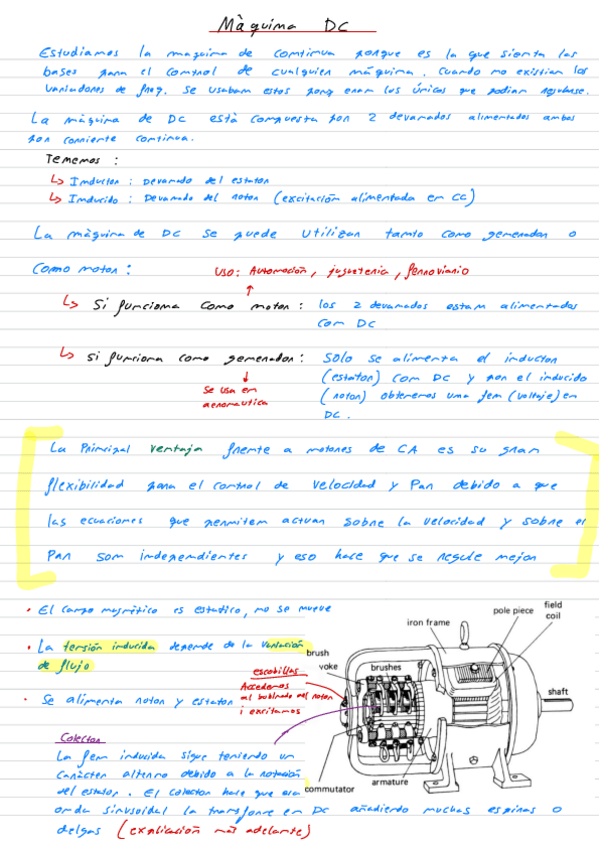 Màquina DC
Estudiamos la maquina de continua porque es la que sienta las
bases para el control de cualquier máquina. Cuando no existían los
variadores de freq. se usaban estos porq eran los únicos que podian regularse.
La màquina de DC està compuesta por 2 devanados alimentados ambos
por corriente continua.
Tenemos :
↳ Inductor : Devanado del estator
↳ Inducido : Devanado del rotor (excitación alimentada en CC)
La màquina de DC se puede utilizar tanto como generador o
como motor :
USO: Automoción, jugueteria, ferroviario
↳ Si funciona como motor : los 2 devanados estan alimentados
con DC
↳ Si funciona como generador : Solo se alimenta el inductor
(estator) con DC y por el inducido
(rotor) obtenemos una fem (voltaje) en
DC.
Se usa en
aeronautica
La Principal ventaja frente a motores de CA es su gran
flexibilidad para el control de velocidad y Par debido a que
las ecuaciones que permiten actuar sobre la velocidad y sobre el
Par son independientes y eso hace que se regule mejor
• El campo magnético es estatico, no se mueve
• La tensión inducida depende de la variación
de flujo
• Se alimenta rotor y estator
escobillas
Accedemos
al bobinado del rotor
i excitamos
Colector
La fem inducida sigue teniendo un
carácter alterno debido a la rotación
del estator. El colector hace que esa
onda sinusoidal la transforme en DC añadiendo muchas espiras o
delgas (explicación más adelante)
iron frame
pole piece
field
coil
brush
yoke
brushes
shaft
armature
commutator